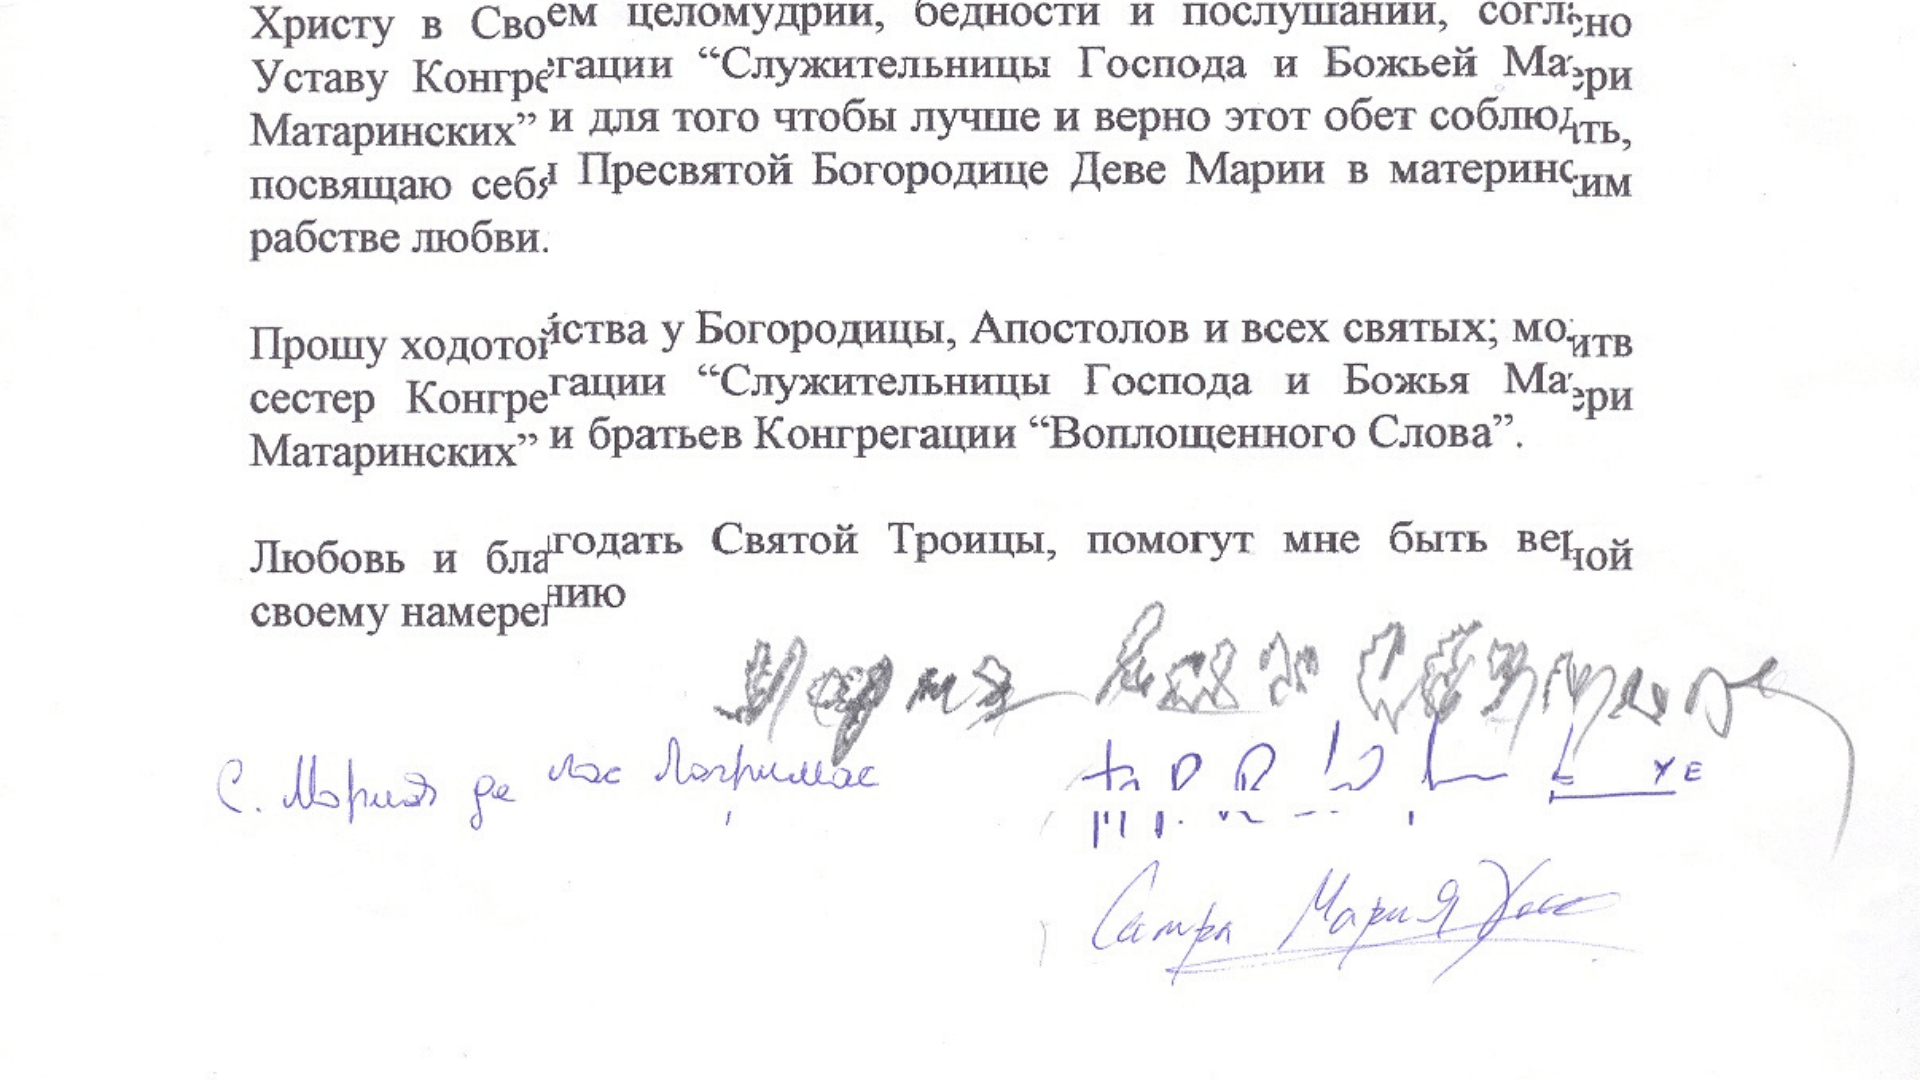 Христу в Своем целомудрии, бедности и послушании, согласно
Уставу Конгрегации “Служительницы Господа и Божьей Матери
Матаринских” и для того чтобы лучше и верно этот обет соблюдать,
посвящаю себя Пресвятой Богородице Деве Марии в материнским
рабстве любви.
Прошу ходотойства у Богородицы, Апостолов и всех святых; молитв
сестер Конгрегации “Служительницы Господа и Божья Матери
Матаринских” и братьев Конгрегации “Воплощенного Слова”.
Любовь и благодать Святой Троицы, помогут мне быть верной
своему намерению
Мария
С. Мария де лас Лагримас
Сестра Мария